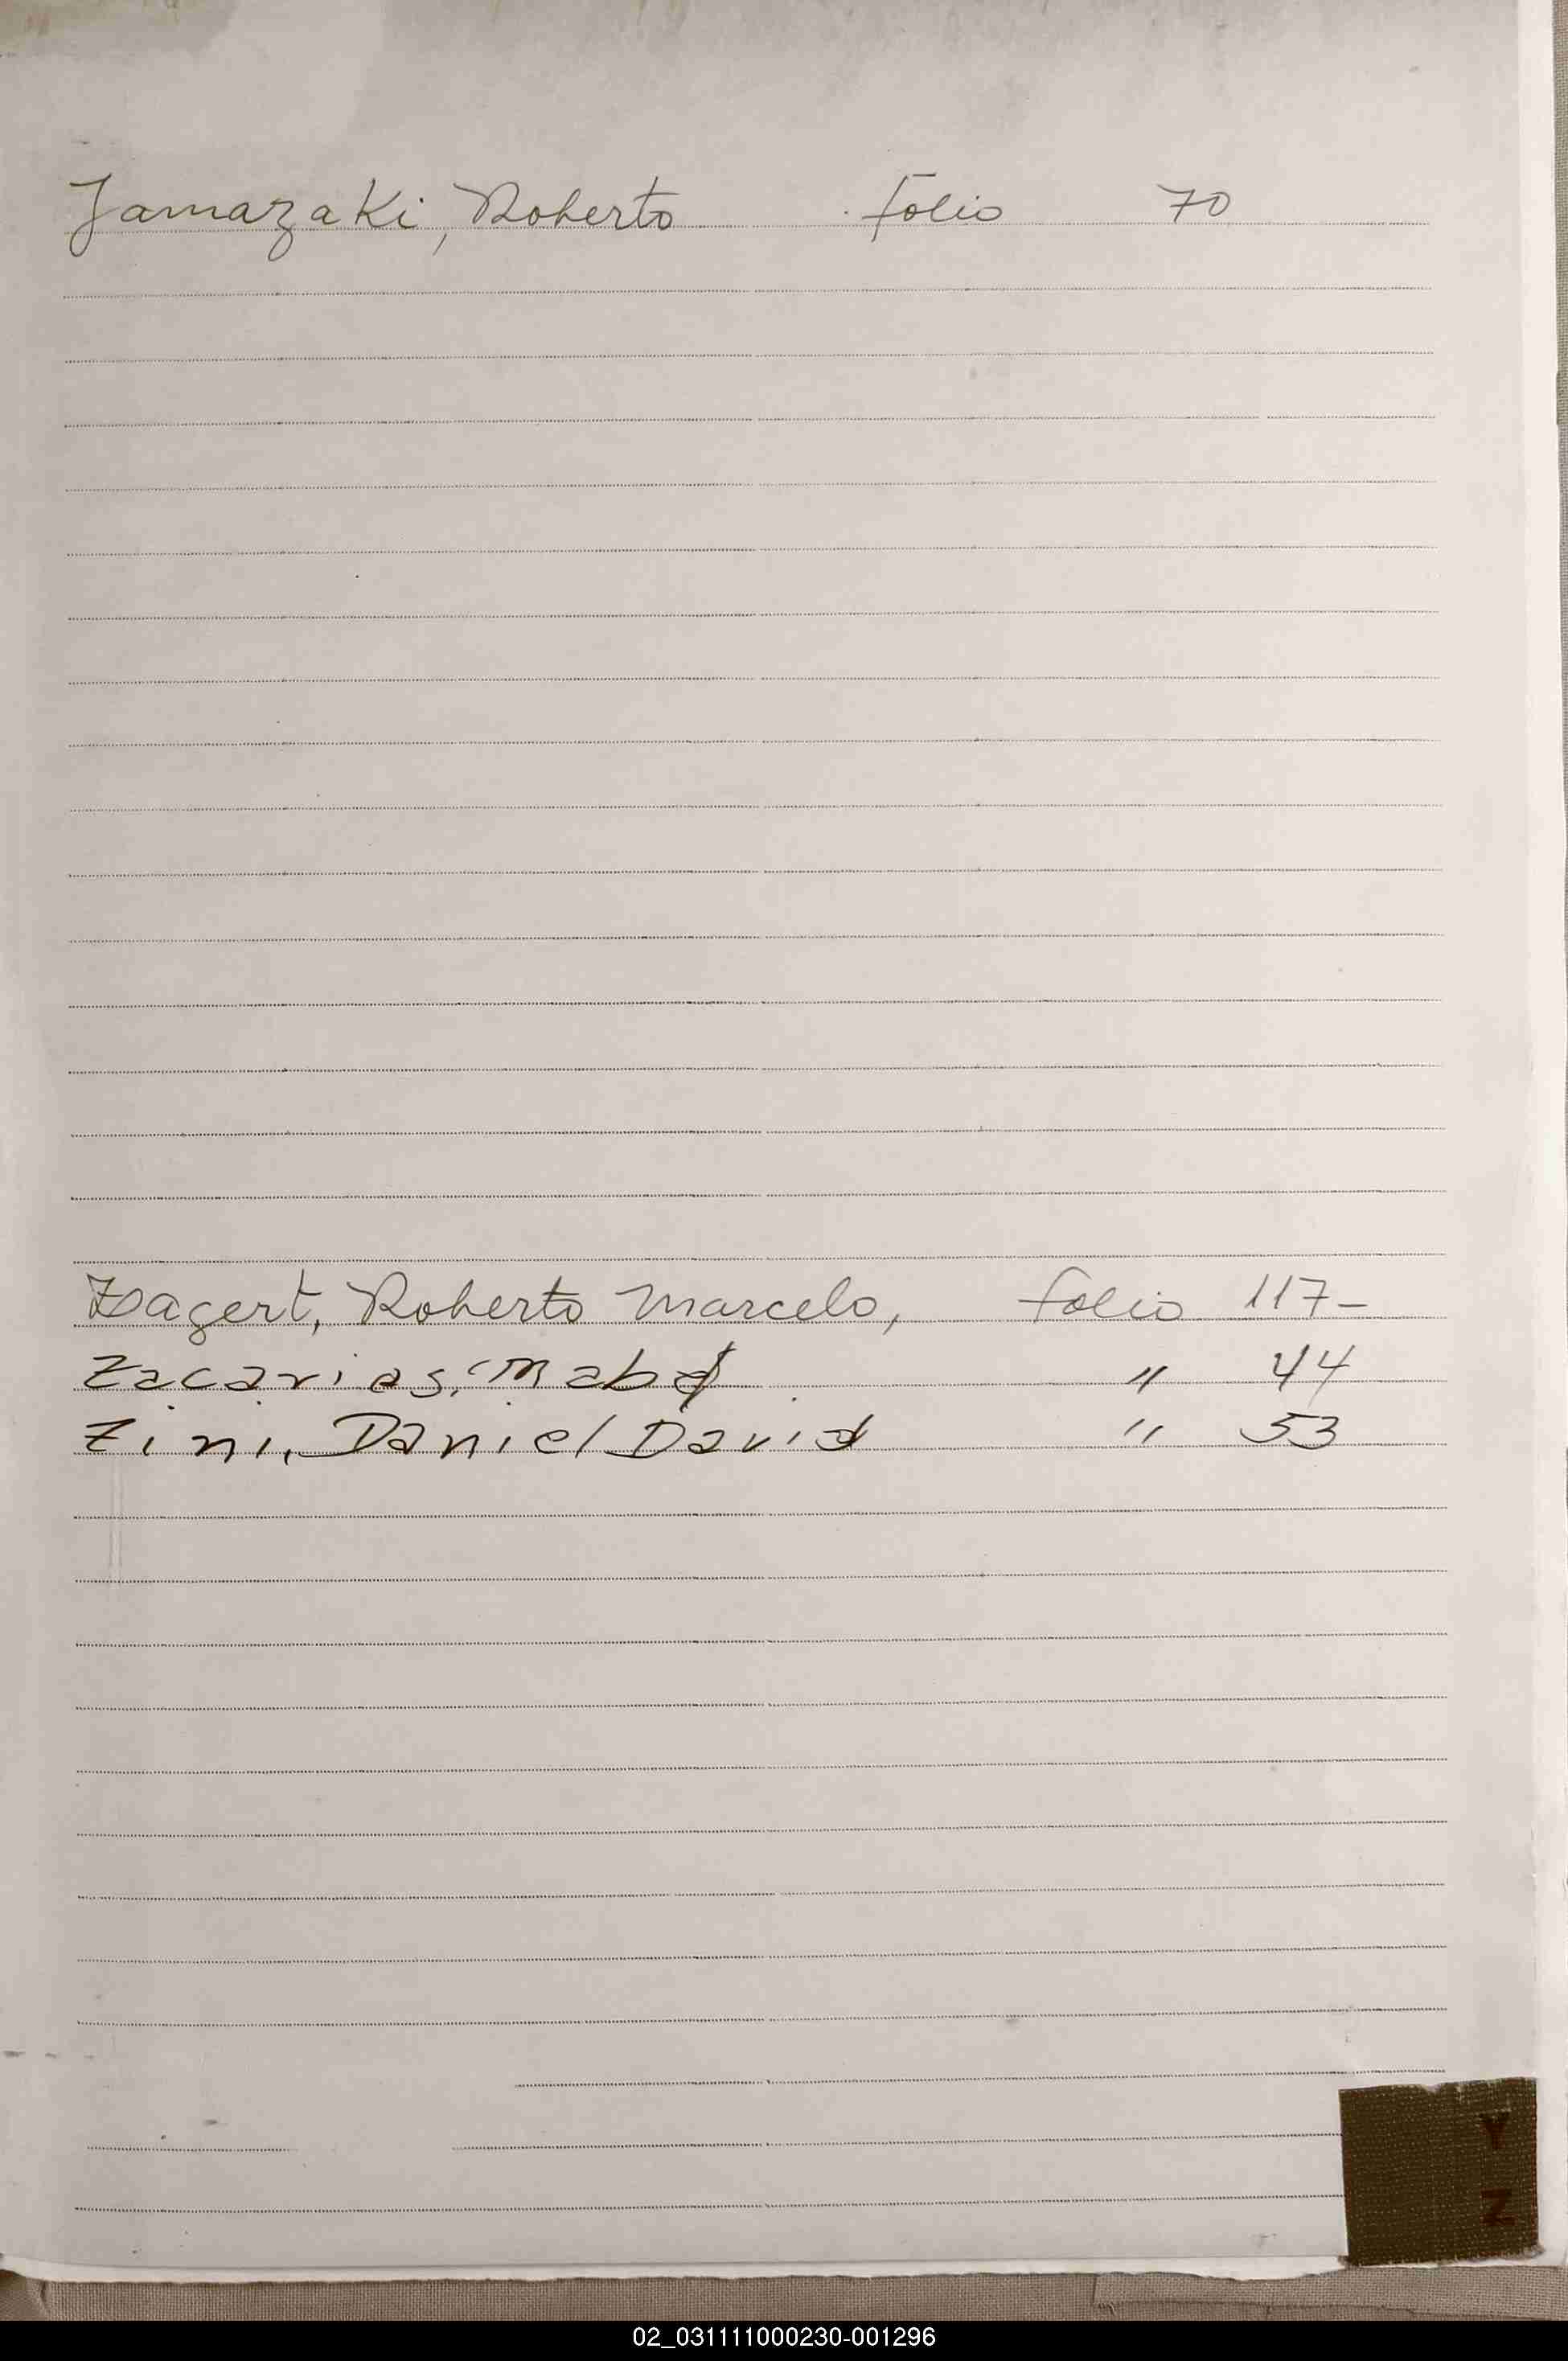 Yamazaki, Roberto Folio 70
Zagert, Roberto Marcelo, folio 117-
Zacarias, Mabel " 44
Zini, Daniel David " 53
Y
Z
02_031111000230-001296